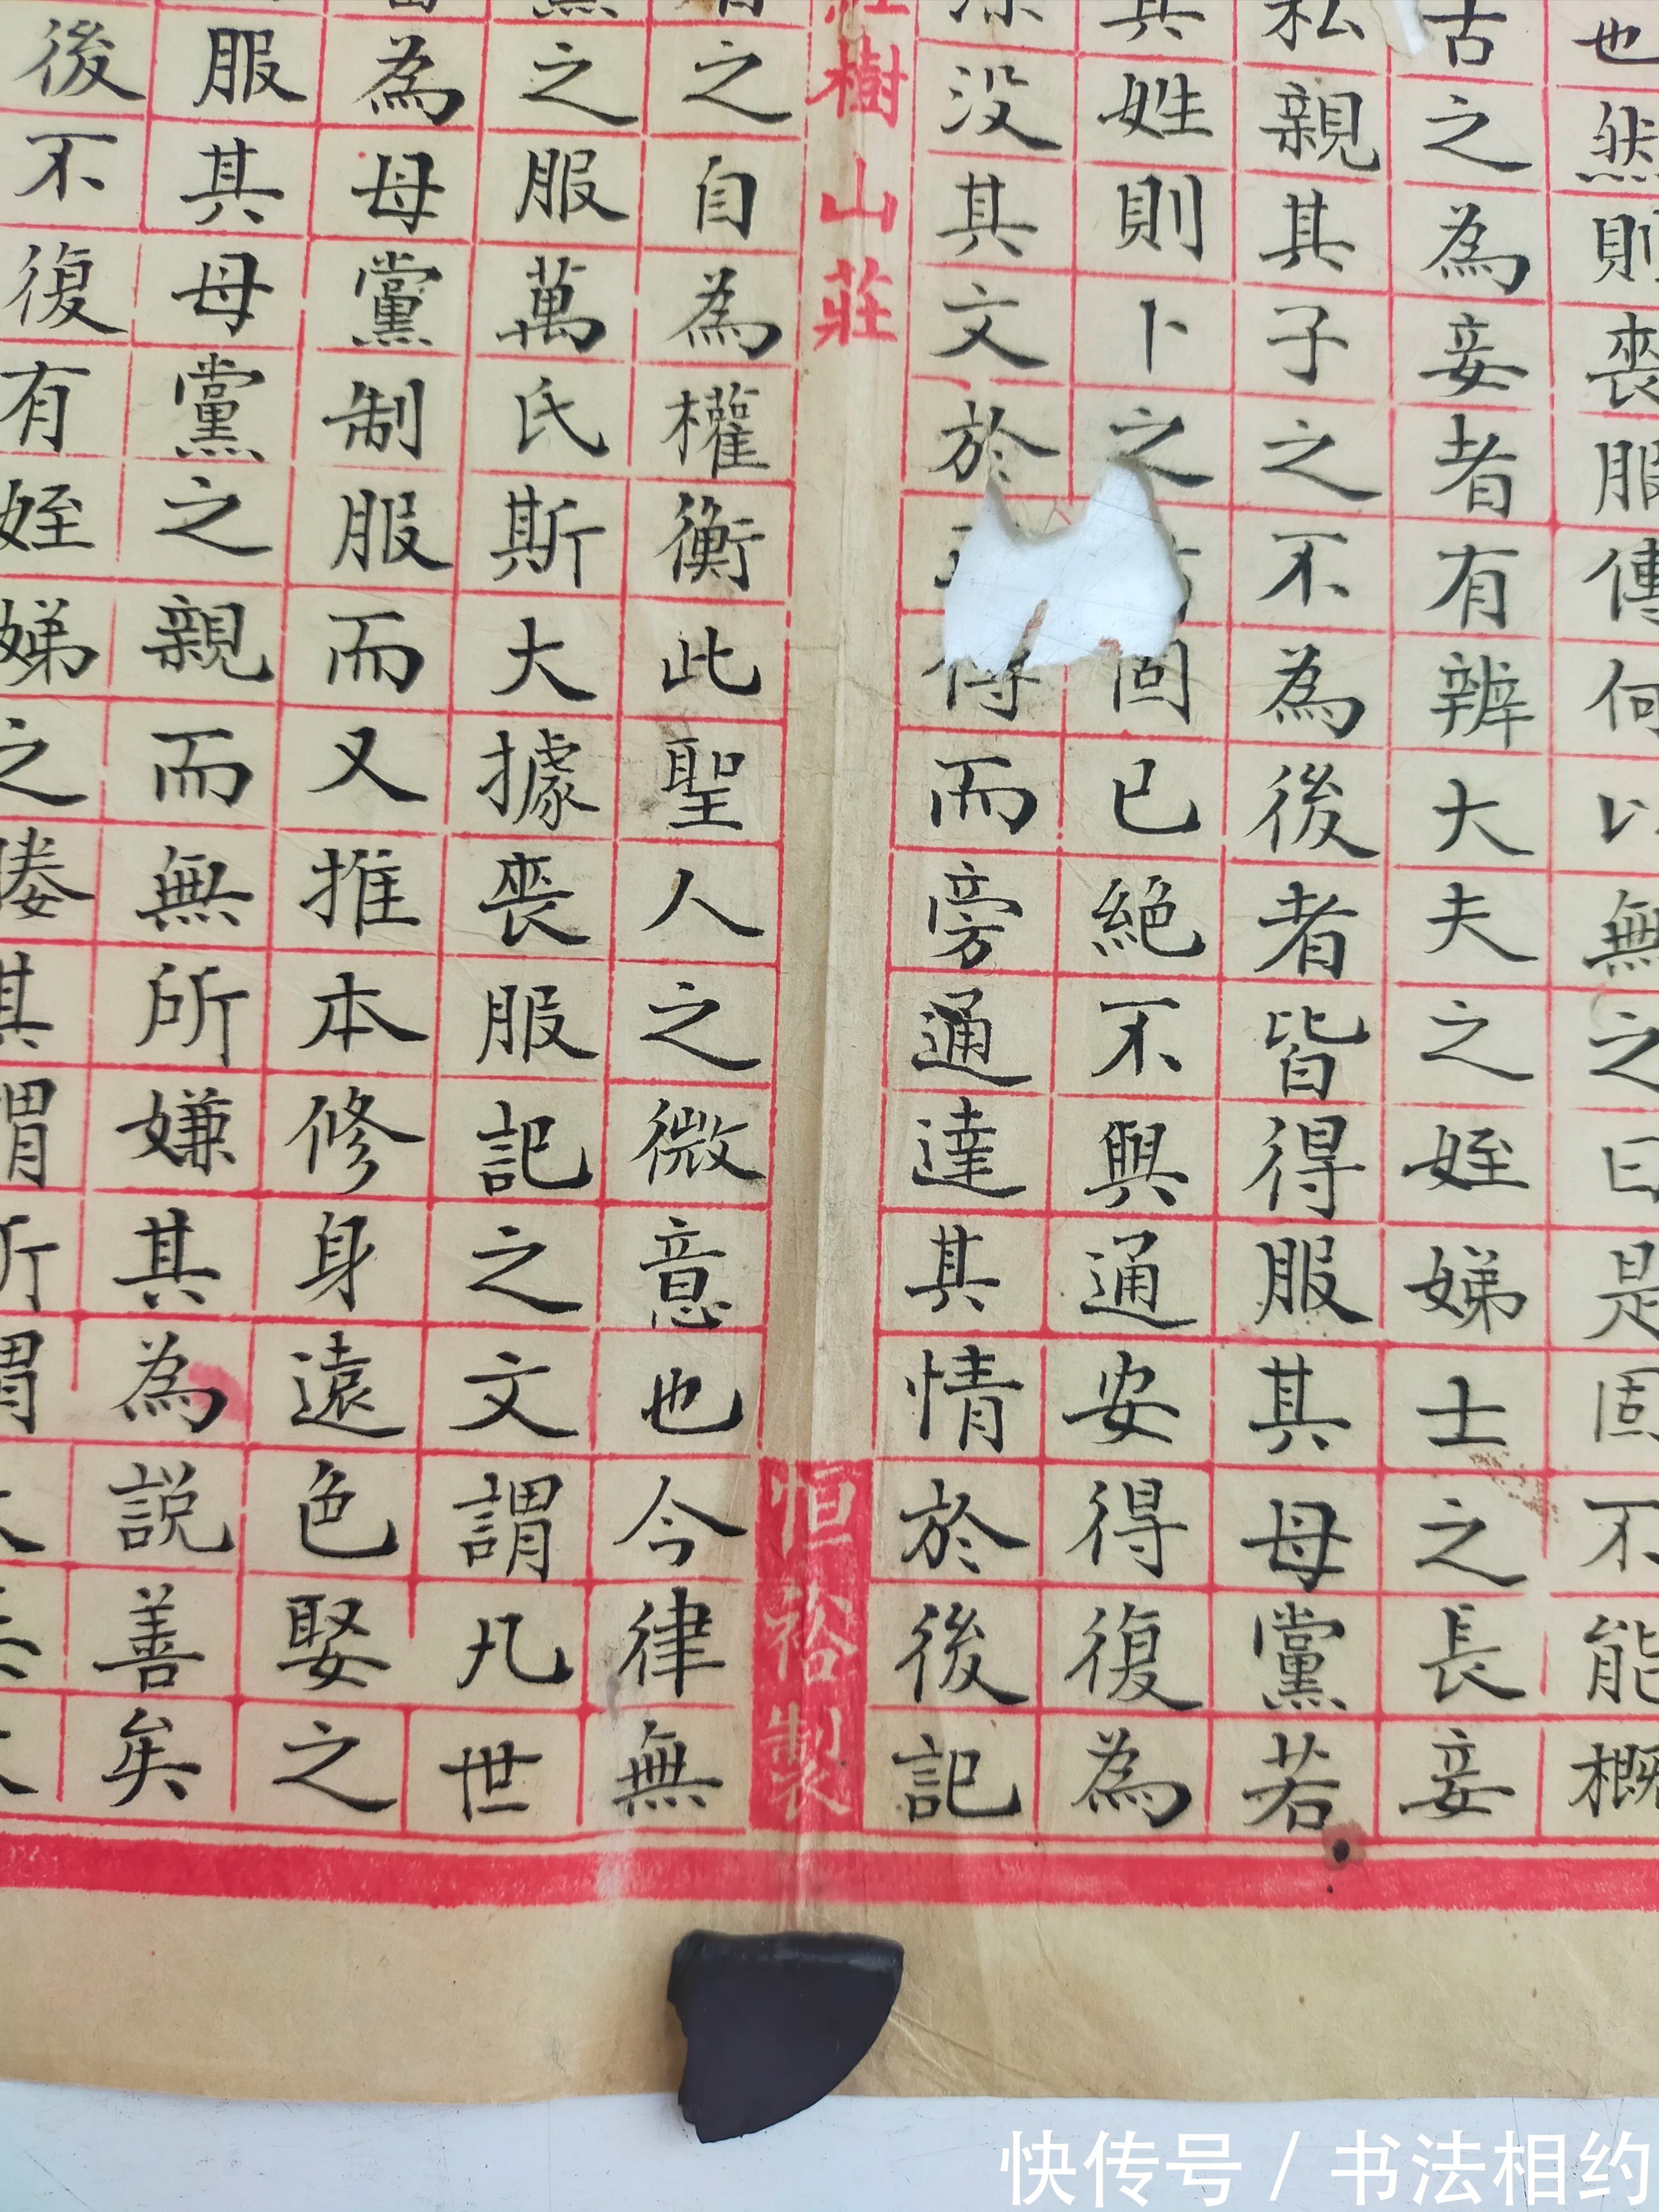 也然則喪服傳何以無之曰是固不能概
古之為妾者有辨大夫之姪娣士之長妾
私親其子之不為後者皆得服其母黨若
其姓則卜之固已絕不與通安得復為
深沒其文於得而旁通達其情於後記
樹山莊
恒裕製
之自為權衡此聖人之微意也今律無
之服萬氏斯大據喪服記之文謂凡世
為母黨制服而又推本修身遠色娶之
服其母黨之親而無所嫌其為說善矣
後不復有姪娣之媵其謂所謂
快传号 / 书法相约